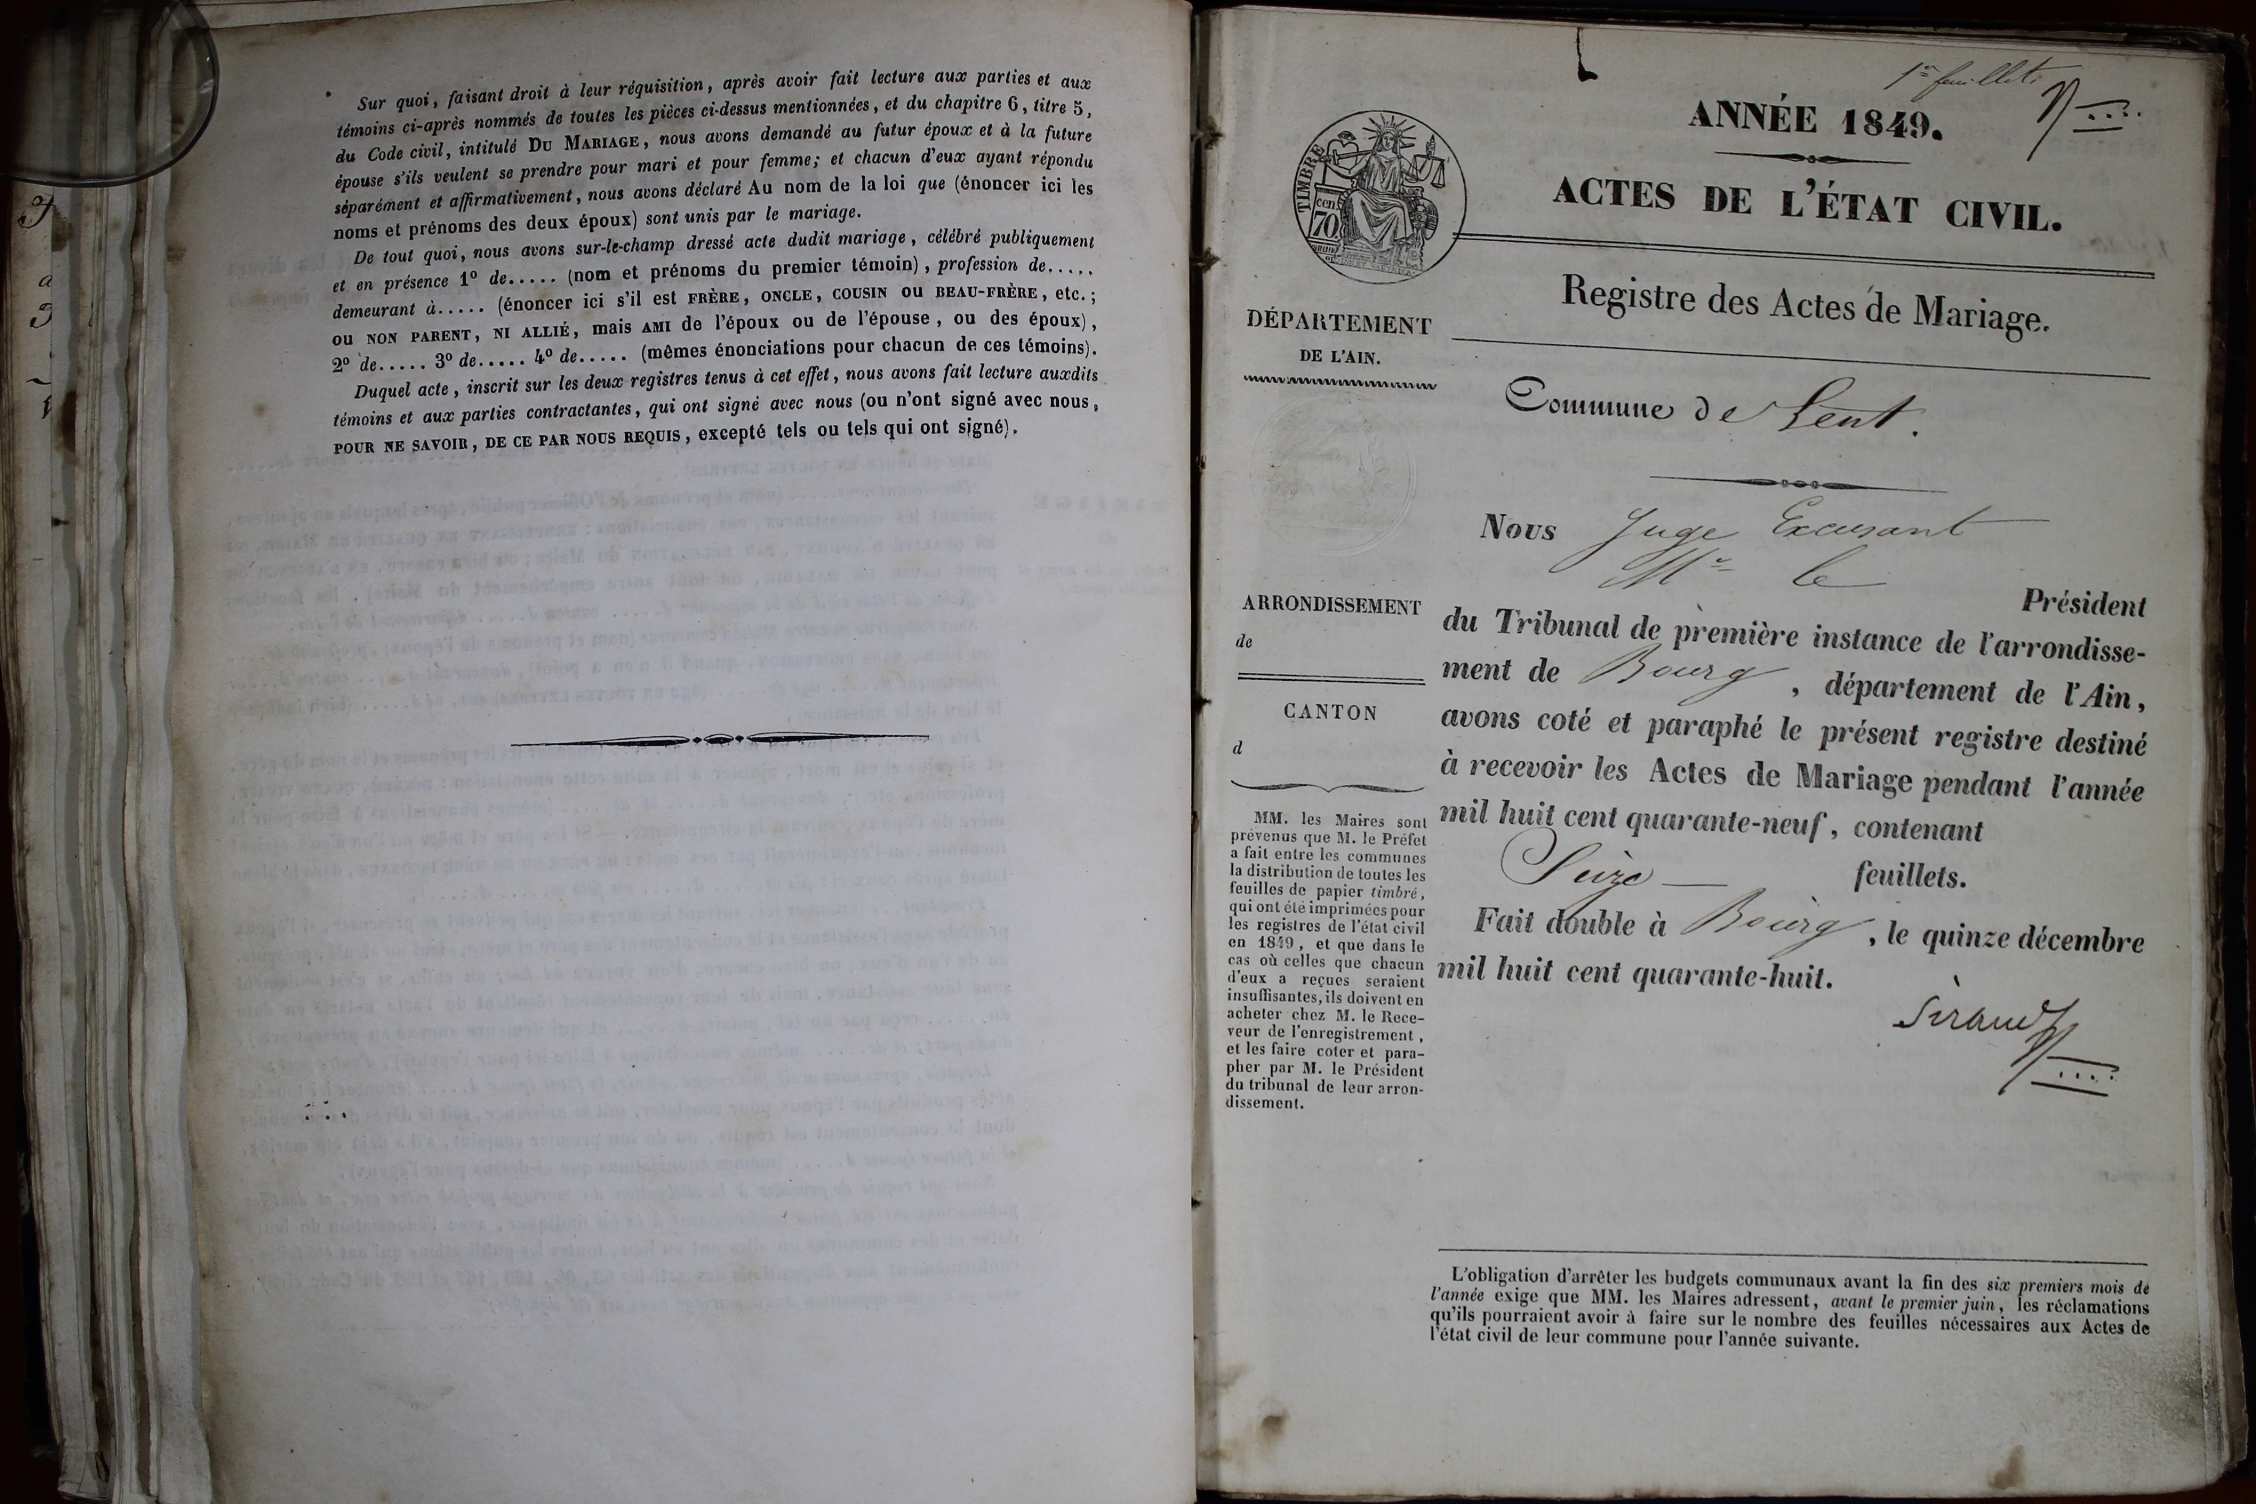 Sur quoi, faisant droit à leur réquisition, après avoir fait lecture aux parties et aux
témoins ci-après nommés de toutes les pièces ci-dessus mentionnées, et du chapitre 6, titre 5,
du Code civil, intitulé DU MARIAGE, nous avons demandé au futur époux et à la future
épouse s'ils veulent se prendre pour mari et pour femme; et chacun d'eux ayant répondu
séparément et affirmativement, nous avons déclaré Au nom de la loi que (énoncer ici les
noms et prénoms des deux époux) sont unis par le mariage.
De tout quoi, nous avons sur-le-champ dressé acte dudit mariage, célébré publiquement
et en présence 1º de..... (nom et prénoms du premier témoin), profession de.....
demeurant à..... (énoncer ici s'il est FRÈRE, ONCLE, COUSIN ou BEAU-FRÈRE, etc.;
ou NON PARENT, NI ALLIÉ, mais AMI de l'époux ou de l'épouse, ou des époux),
2º de..... 3º de..... 4º de..... (mêmes énonciations pour chacun de ces témoins).
Duquel acte, inscrit sur les deux registres tenus à cet effet, nous avons fait lecture auxdits
témoins et aux parties contractantes, qui ont signé avec nous (ou n'ont signé avec nous,
POUR NE SAVOIR, DE CE PAR NOUS REQUIS, excepté tels ou tels qui ont signé).
1er feuillet
ANNÉE 1849.
ACTES DE L'ÉTAT CIVIL.
TIMBRE
cen.
70
Registre des Actes de Mariage.
DÉPARTEMENT
DE L'AIN.
Commune de Lent.
Nous Juge Excusant
Mr le
Président
du Tribunal de première instance de l'arrondisse-
ment de Bourg, département de l'Ain,
avons coté et paraphé le présent registre destiné
à recevoir les Actes de Mariage pendant l'année
mil huit cent quarante-neuf, contenant
Seize feuillets.
Fait double à Bourg, le quinze décembre
mil huit cent quarante-huit.
ARRONDISSEMENT
de
CANTON
d
MM. les Maires sont
prévenus que M. le Préfet
a fait entre les communes
la distribution de toutes les
feuilles de papier timbré,
qui ont été imprimées pour
les registres de l'état civil
en 1849, et que dans le
cas où celles que chacun
d'eux a reçues seraient
insuffisantes, ils doivent en
acheter chez M. le Rece-
veur de l'enregistrement,
et les faire coter et para-
pher par M. le Président
du tribunal de leur arron-
dissement.
L'obligation d'arrêter les budgets communaux avant la fin des six premiers mois de
l'année exige que MM. les Maires adressent, avant le premier juin, les réclamations
qu'ils pourraient avoir à faire sur le nombre des feuilles nécessaires aux Actes de
l'état civil de leur commune pour l'année suivante.